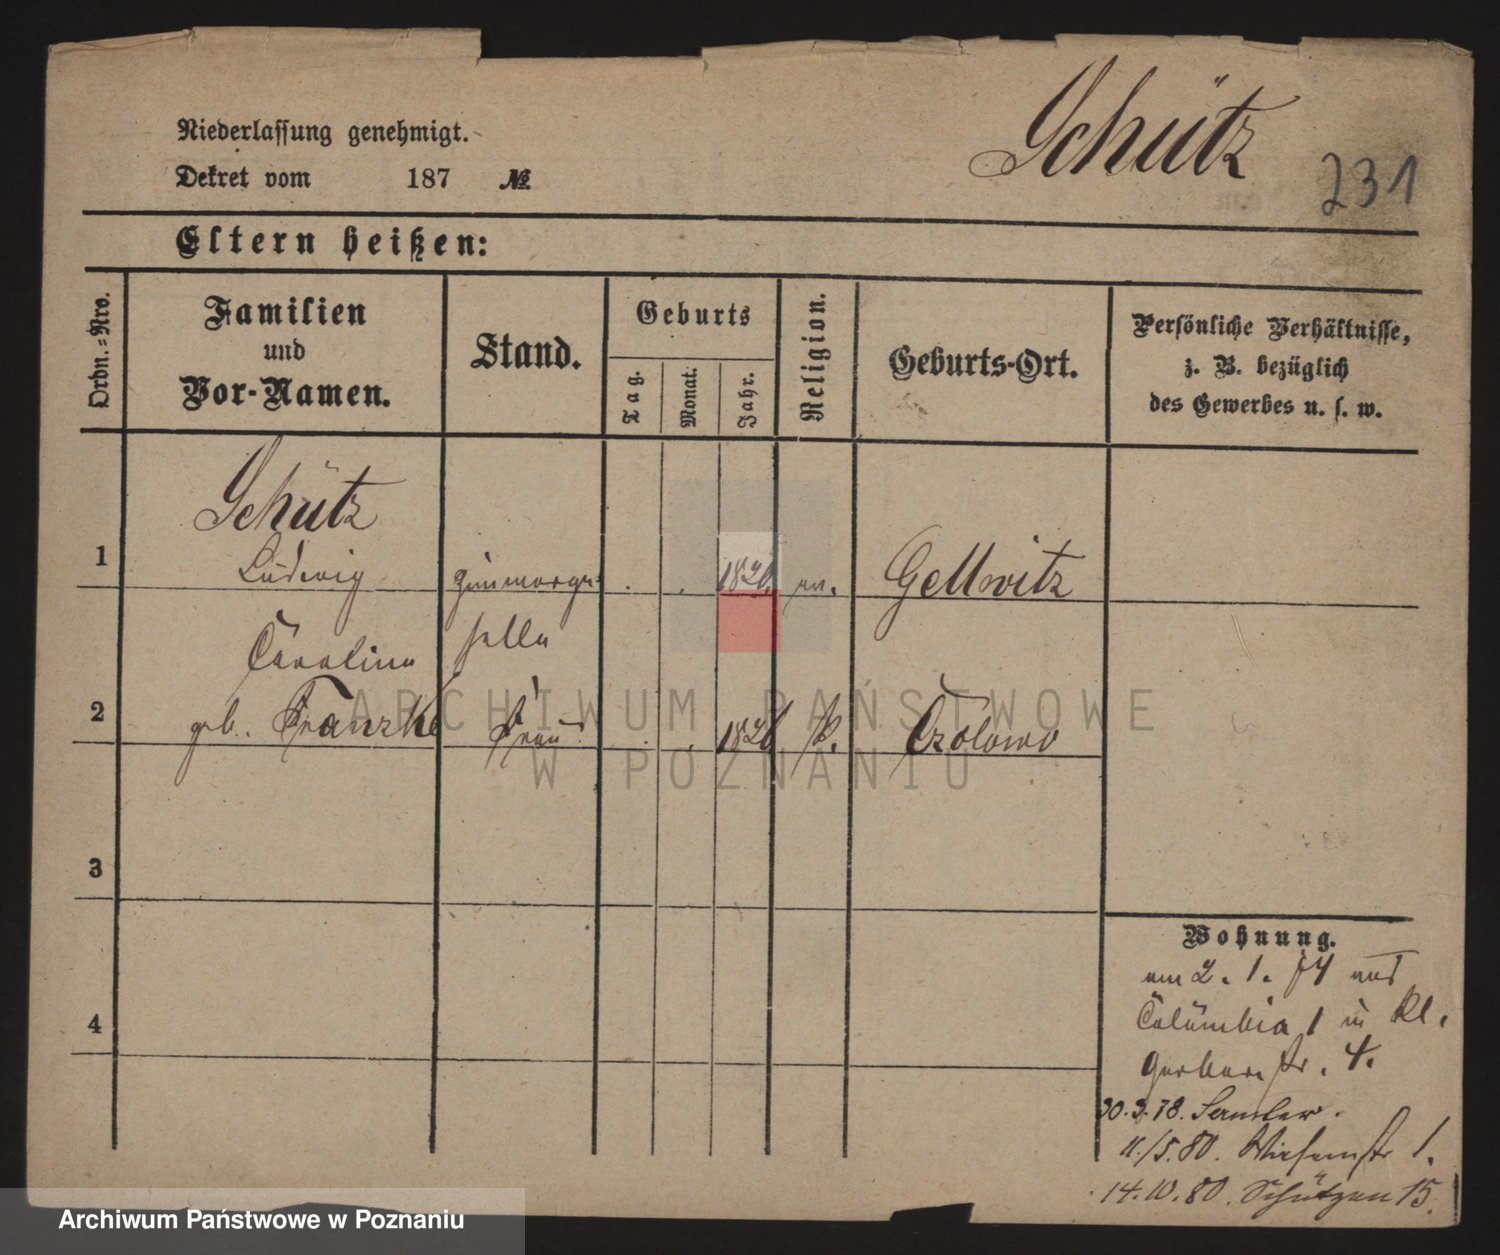 Schütz
231
Niederlassung genehmigt.
Dekret vom 187 №
Eltern heißen:
Ordn.=Nro.
Familien
und
Vor-Namen.
Stand.
Geburts
Tag.
Monat.
Jahr.
Religion.
Geburts-Ort.
Persönliche Verhältnisse,
z. B. bezüglich
des Gewerbes u. s. w.
Schütz
1 Ludwig Zimmerge- 1826. ev. Gellwitz
selle
Caroline
2 geb. Franzke Frau 1826 k. Czolowo
ARCHIWUM PAŃSTWOWE
W POZNANIU
3
4
Wohnung.
am 2. 1. 74 aus
Columbia 1 in Kl.
Gerberstr. 4.
30.3.78.
11./5.80. Wiesenstr 1.
14.10.80. Schützen 15.
Archiwum Państwowe w Poznaniu